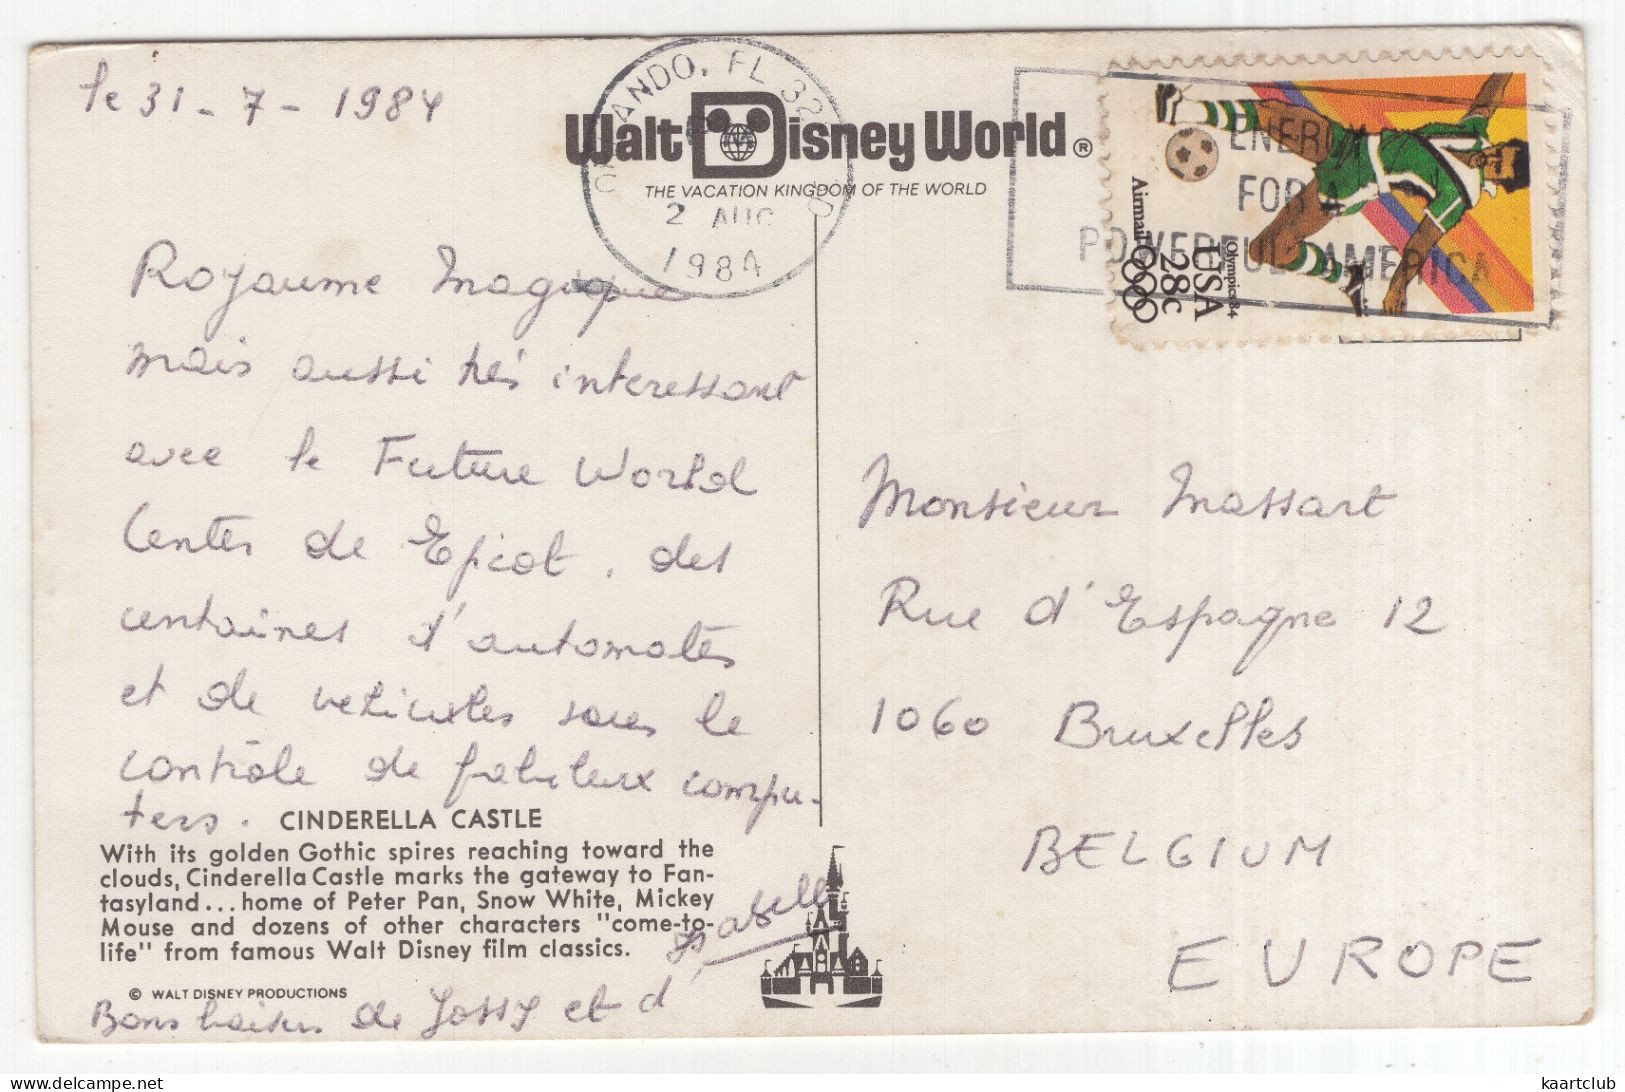 le 31 - 7 - 1984
ANDO, FL 32
2 AUG
1984
Walt Disney World ®
THE VACATION KINGDOM OF THE WORLD
ENERGY
FOR A
POWERFUL AMERICA
Olympics 84
USA
28c
Airmail
Royaume Magique
mais aussi très interessant
avec le Future World
Center de Epcot, des
centaines d'automates
et de vehicules sous le
contrôle de fabuleux compu-
ters.
CINDERELLA CASTLE
With its golden Gothic spires reaching toward the
clouds, Cinderella Castle marks the gateway to Fan-
tasyland... home of Peter Pan, Snow White, Mickey
Mouse and dozens of other characters "come-to-
life" from famous Walt Disney film classics.
© WALT DISNEY PRODUCTIONS
Bons baisers de Jossy et d'
Isabelle
Monsieur Massart
Rue d'Espagne 12
1060 Bruxelles
BELGIUM
EUROPE
kaartclub